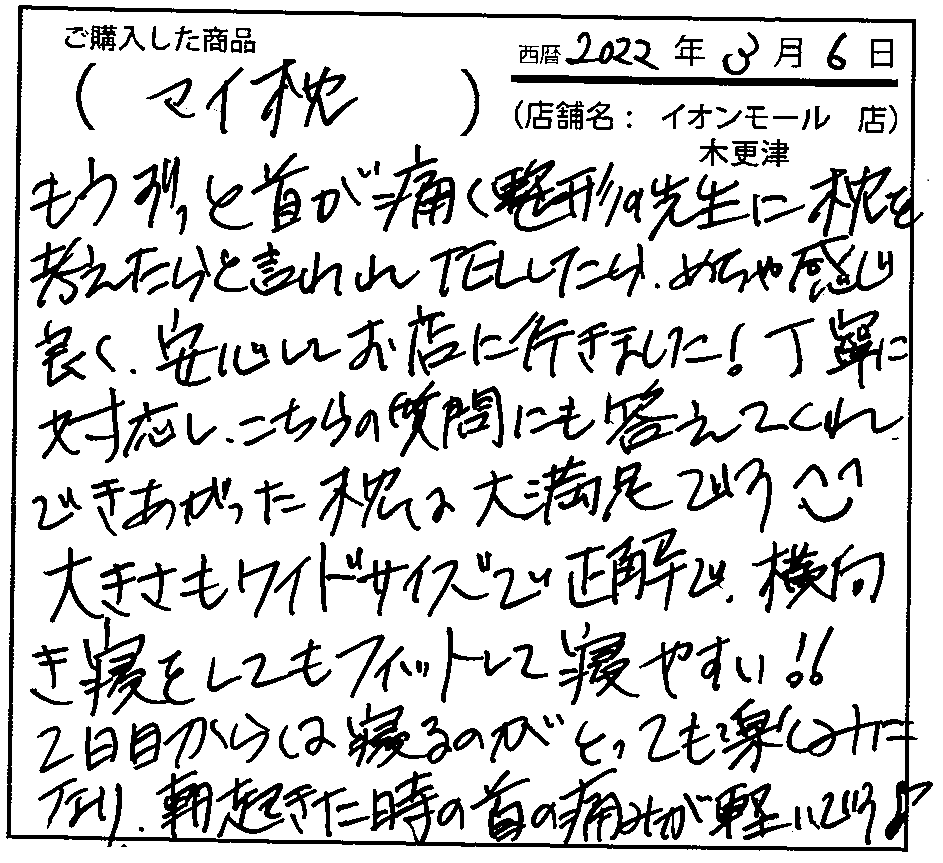 ご購入した商品
西暦 2022 年 3 月 6 日
( マイ枕 )
(店舗名： イオンモール 店)
木更津
もうずっと首が痛く整形の先生に枕を
考えたらと言われTELしたら、めちゃ感じ
良く、安心してお店に行きました!丁寧に
対応し、こちらの質問にも答えてくれ
できあがった枕は大満足です
大きさもワイドサイズで正解で、横向
き寝をしてもフィットして寝やすい!!
2日目からは寝るのがとっても楽しみに
なり、朝起きた時の首の痛みが軽いです♪